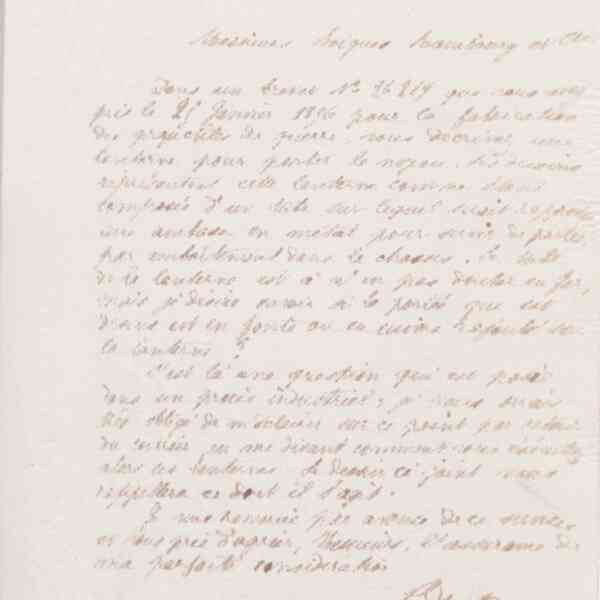 Messieurs Boigues Rambourg et Cie
Dans un brevet No que vous avez
pris le 21 Janvier 1856 pour la fabrication
de projectiles de guerre, vous décrivez une
lanterne pour porter le noyau. Le dessin
représentant cette lanterne comme étant
composée d'un tube sur lequel serait
une embase en métal pour servir de portée
par emboîtement dans le chassis. Le tube
de la lanterne est à n'en pas douter en fer,
mais je désire savoir si la portée que est
dessus est en fonte ou en cuivre rajouté sur
la lanterne ?
C'est là une question qui est posée
dans un procès industriel, je vous serais
très obligé de m'éclairer sur ce point par retour
du courrier en me disant comment vous
alors ces lanternes. Le dessin ci joint vous
rappellera ce dont il s'agit.
Je vous remercie par avance de ce service,
et vous prie d'agréer, Messieurs, l'assurance de
ma parfaite considération